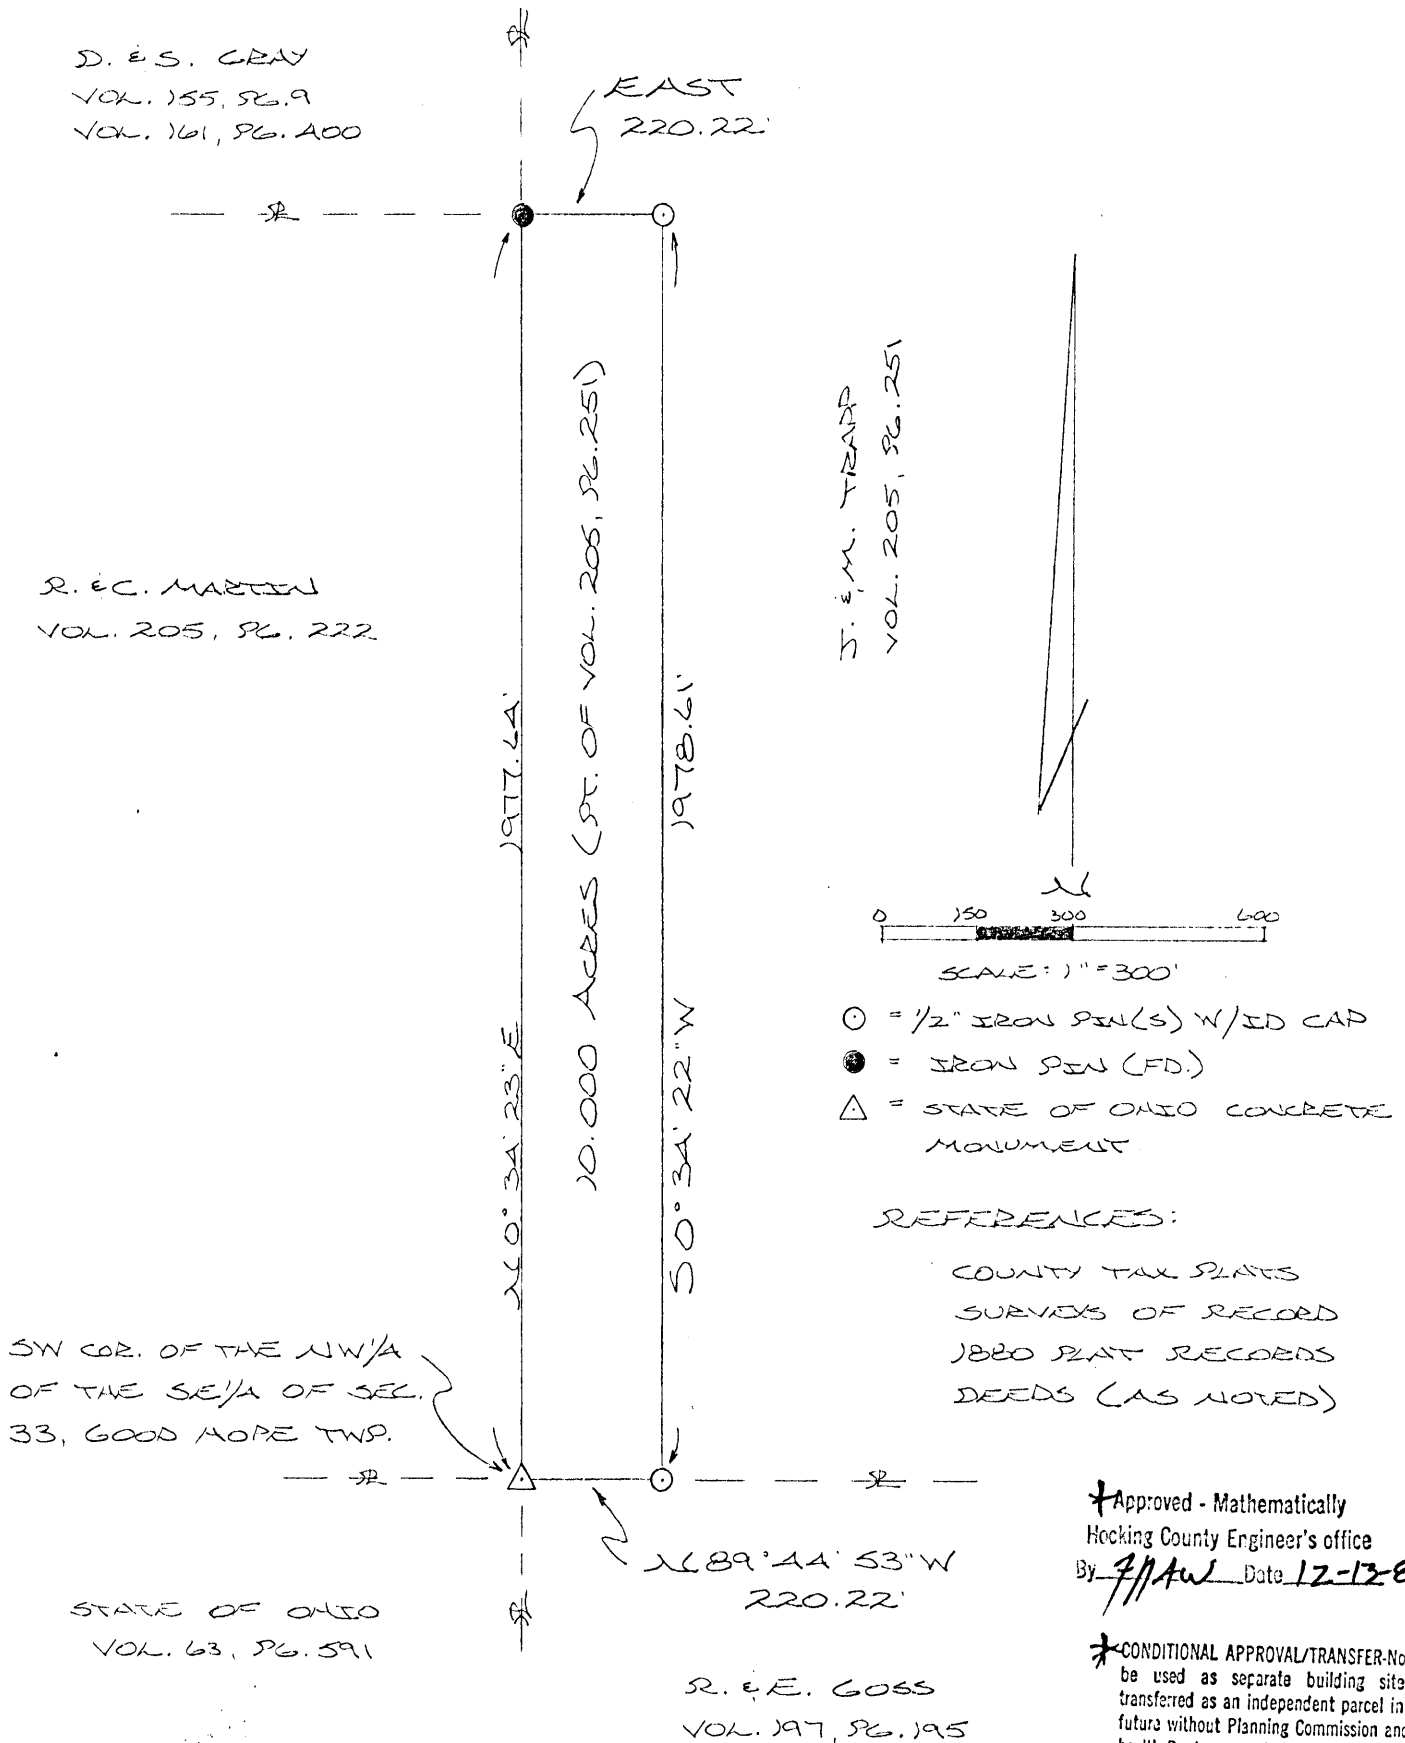 D. & S. GRAY
VOL. 155, PG. 9
VOL. 161, PG. 400
EAST
220.22'
R. & C. MARTIN
VOL. 205, PG. 222
N 0° 34' 23" E 1977.64'
10.000 ACRES (PT. OF VOL. 205, PG. 251)
S 0° 34' 22" W 1978.61'
J. & M. TRAPP
VOL. 205, PG. 251
N
0 150 300 600
SCALE: 1" = 300'
= 1/2" IRON PIN(S) W/ID CAP
= IRON PIN (FD.)
= STATE OF OHIO CONCRETE
MONUMENT
REFERENCES:
COUNTY TAX PLATS
SURVEYS OF RECORD
1880 PLAT RECORDS
DEEDS (AS NOTED)
SW COR. OF THE NW1/4
OF THE SE1/4 OF SEC.
33, GOOD HOPE TWP.
N 89° 44' 53" W
220.22'
STATE OF OHIO
VOL. 63, PG. 591
R. & E. GOSS
VOL. 197, PG. 195
Approved - Mathematically
Hocking County Engineer's office
By Date 12-13-8
CONDITIONAL APPROVAL/TRANSFER-No
be used as separate building site
transferred as an independent parcel in
future without Planning Commission and